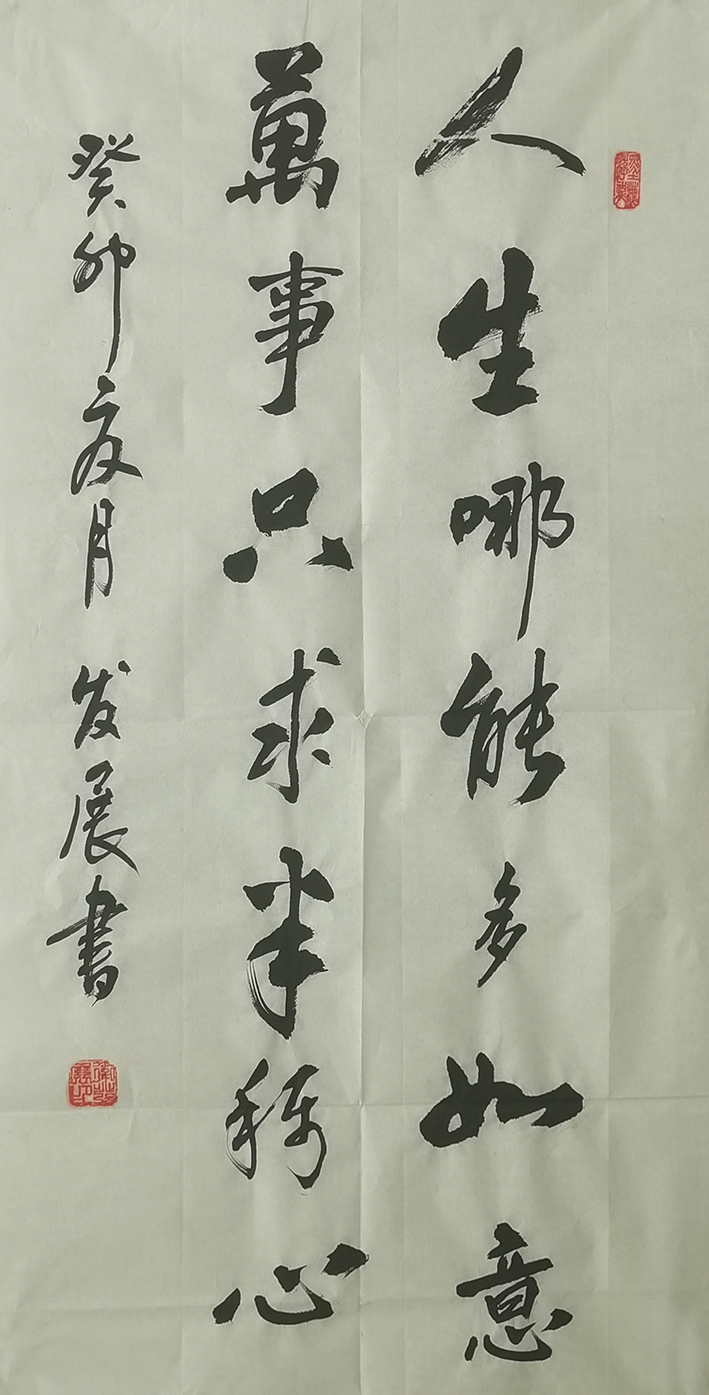 人生哪能多如意
萬事只求半称心
癸卯夏月 发展書